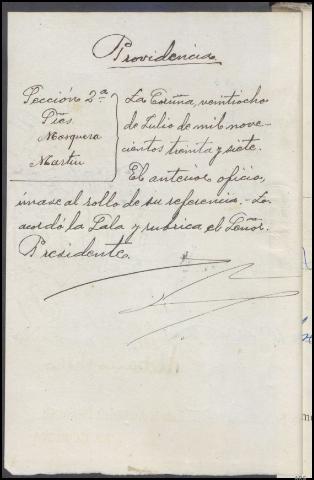 Providencia
Sección 2ª
Pres.
Mosquera
Martin
La Coruña, veintiocho
de Julio de mil nove-
cientos treinta y siete.
El anterior oficio,
únase al rollo de su referencia.- Lo
acordó la Sala y rubrica el Señor.
Presidente.